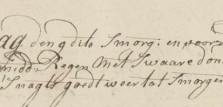 ag den 9 dito Smorg: en voorm
midd: Regen Met Swaare don
Snagts goedt weer tot Smorgen